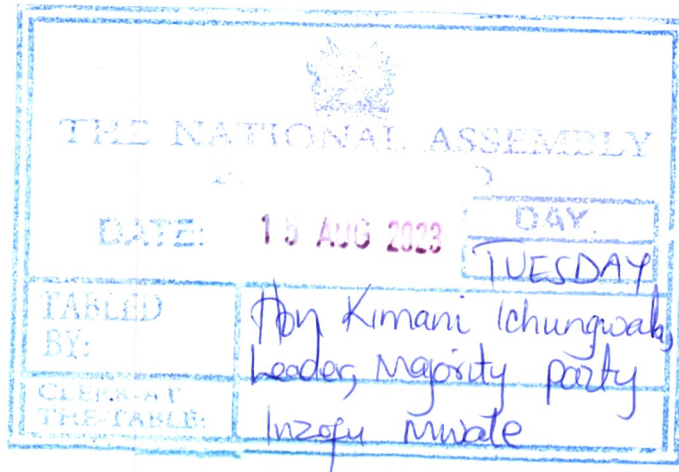 THE NATIONAL ASSEMBLY
DATE: 15 AUG 2023
DAY.
TUESDAY
TABLED BY:
Hon Kimani Ichungwah,
Leader, Majority party
CLERK-AT THE-TABLE:
Inzofu Mwale